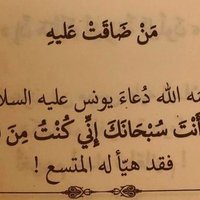 مَنْ ضَاقَتْ عَلَيهِ
الله دُعاءَ يونس عليه السلا
أَنْتَ سُبْحَانَكَ إِنِّي كُنْتُ مِنَ
فقد هيّأ له المتسع !